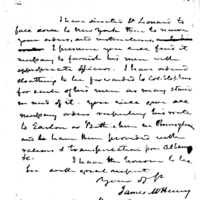 I have directed Lt Leonard to
pass down to New York there to receive
your orders, and instructions
I presume you will find it
necessary to furnish his men with
appropriate officers. I have ordered
cloathing to be forwarded to Col Stephens
for such of his men as may stand
in need of it. You will give all
necessary orders respecting his route
to Easton or Bethlehem in Pennsylva
and to have him provided with
rations & transportation from Albany
&c.
I have the honour to be
Sir with great respect
Your Ob St
James McHenry